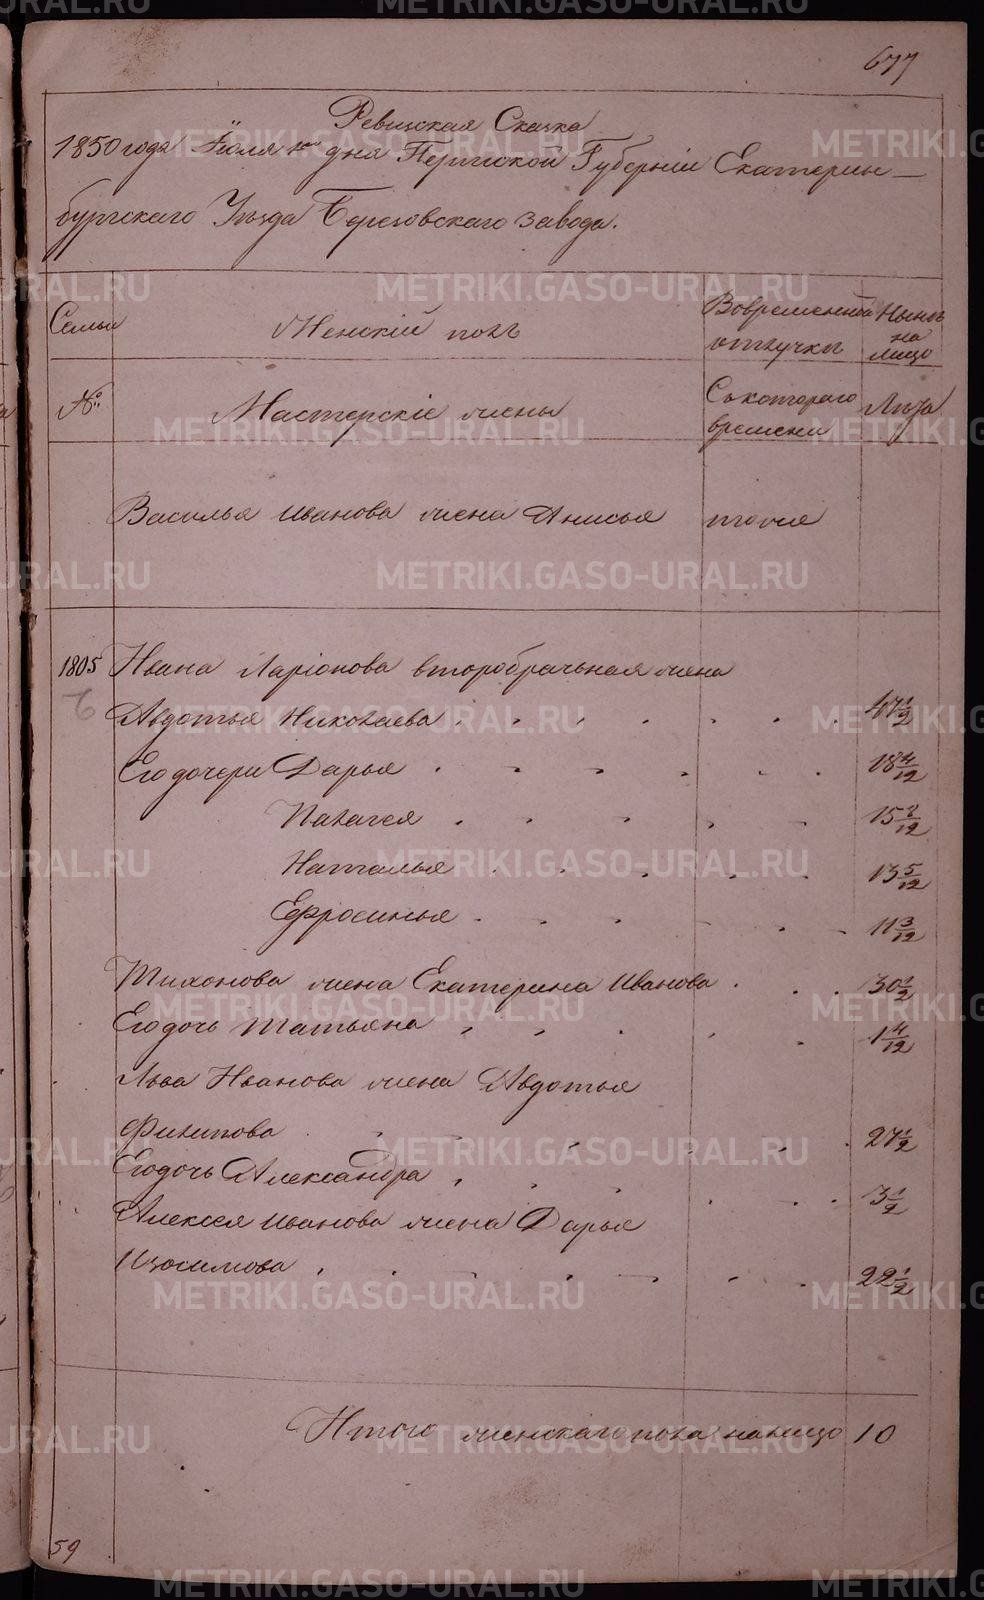 677
Ревизская Сказка
1850 года Іюля 1го дня Пермской Губерніи Екатерин-
бургскаго Уѣзда Березовскаго завода.
Семьи Женскій полъ Вовременной отлучкѣ Нынѣ на лицо
№ Мастерскіе жены Съкотораго времени Лѣта
Василья Иванова жена Анисья тоже
1805 Ивана Ларіонова второбрачьная жена
Авдотья Николаева 47 1/2
Его дочери Дарья 18 4/12
Палагея 15 8/12
Наталья 13 5/12
Ефросинья 11 3/12
Тихонова жена Екатерина Иванова 30 1/2
Его дочь Татьяна 1 4/12
Льва Иванова жена Авдотья
Филипова 27 1/2
Его дочь Александра 3 1/2
Алексея Иванова жена Дарья
Изосимова 22 1/2
Итого женскаго пола налицо 10
59
METRIKI.GASO-URAL.RU